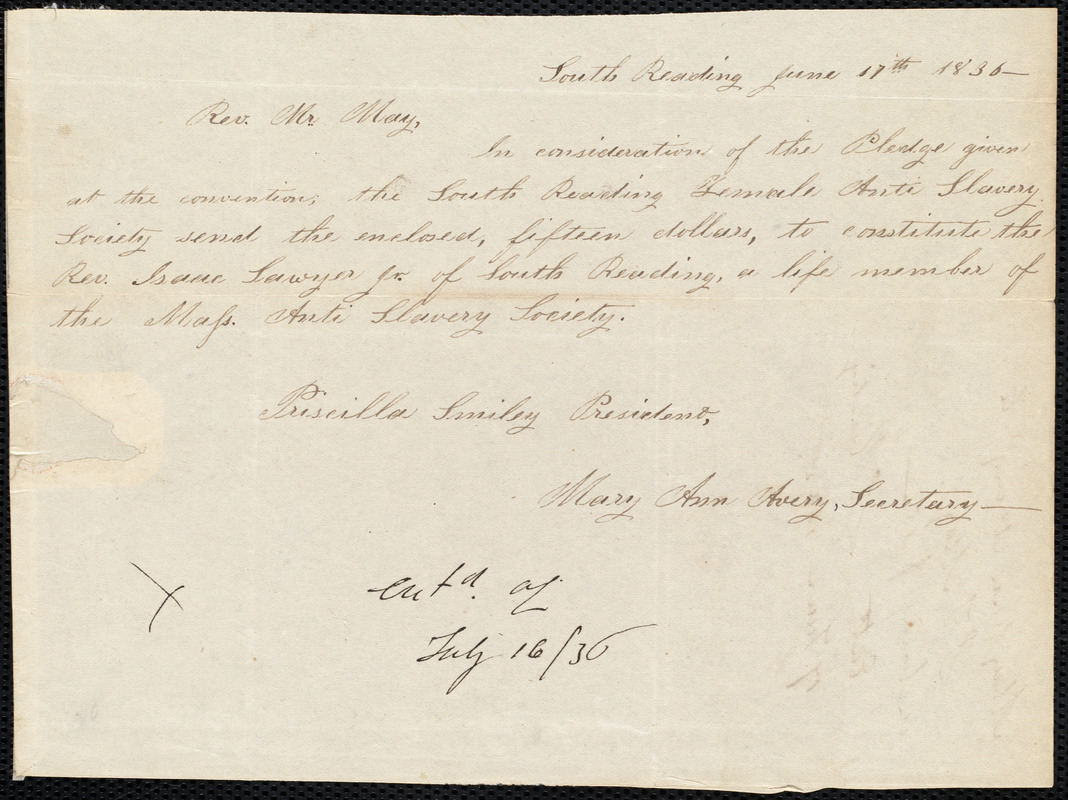 South Reading June 17th 1836—
Rev. Mr. May,
In consideration of the Pledge given
at the convention, the South Reading Female Anti Slavery
Society send the enclosed, fifteen dollars, to constitute the
Rev. Isaac Sawyer Jr. of South Reading, a life member of
the Mass. Anti Slavery Society.
Priscilla Smiley President,
Mary Ann Avery, Secretary—
X
ent'd. of
July 16/36